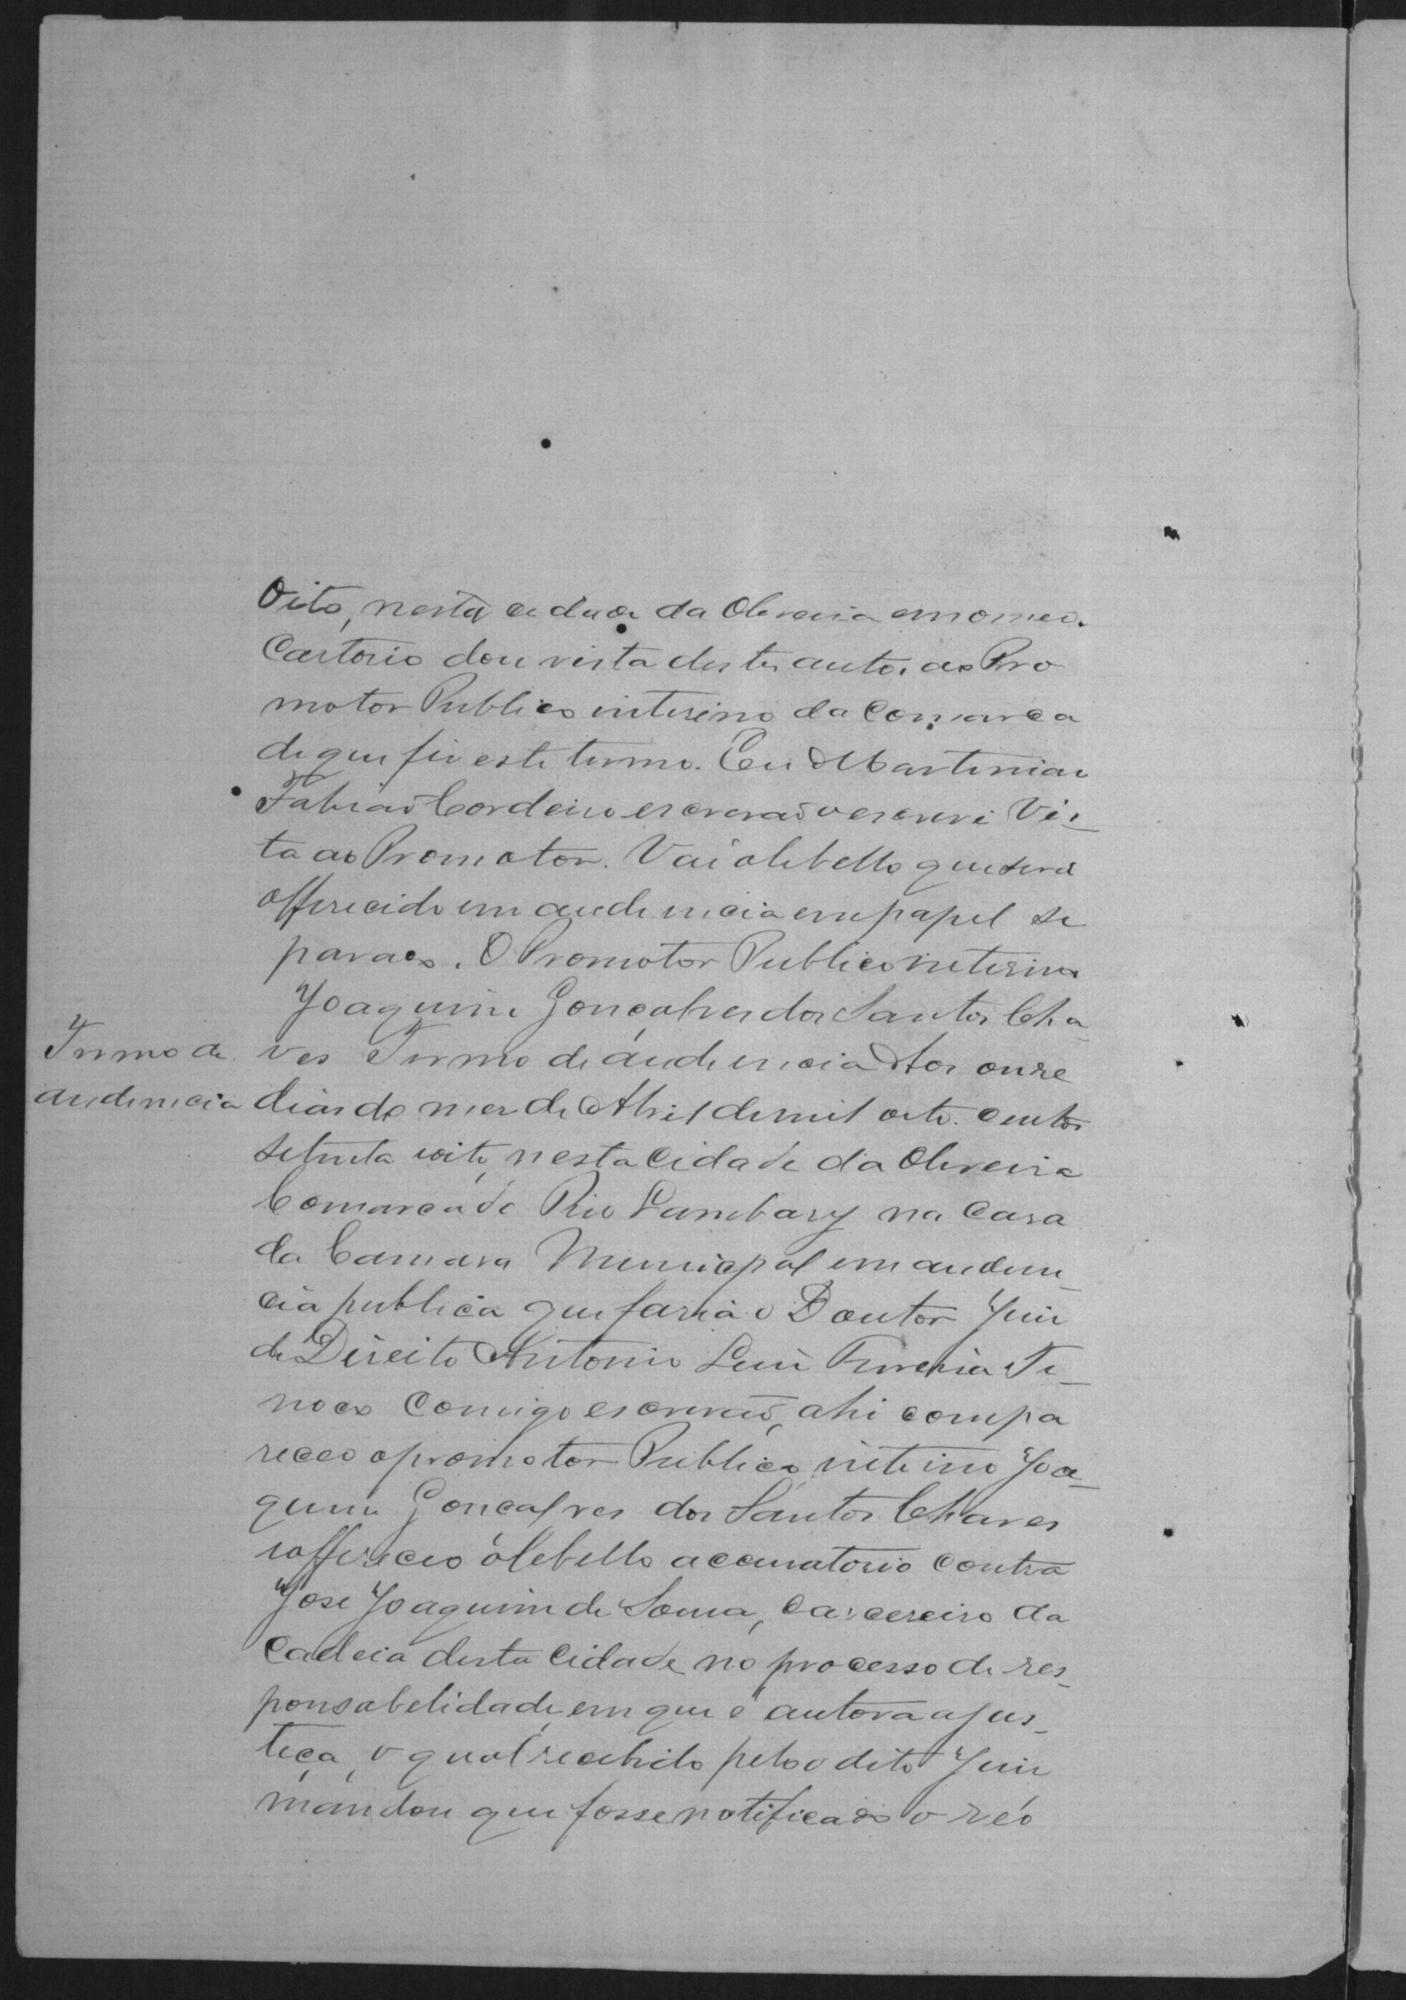 Oito, nesta cidade da Oliveira em meo
Cartorio dou vista destes autos ao Pro
motor Publico interino da Comarca
de que fis este termo. Eu Martinian
Fabiaõ Cordeiro escrivaõ o escrevi Vis_
ta ao Promotor. Vai o libello que será
offerecido em audiencia em papel se
parado. O Promotor Publico interino
Joaquim Gonçalves dos Santos Cha_
Termo de
audiencia
ves Termo de audiencia Aos onze
dias do mes de Abril de mil oito centos
setenta e oito, nesta Cidade da Oliveira
Comarca do Rio Lambary na Casa
da Camara Municipal em audien_
cia publica que faria o Doutor Juiz
de Direito Antonio Luis Ferreira Ti_
noco Comigo escrivaõ, ahi compa
receo o promotor Publico interino Joa_
quim Gonçalves dos Santos Chaves
e offereceo o libello accusatorio contra
José Joaquim de Sousa, Carcereiro da
Cadeia desta Cidade, no processo de res_
ponsabelidade em que é autora a jus_
tiça, o qual recebido pelo dito Juiz
mandou que fosse notificado o réo